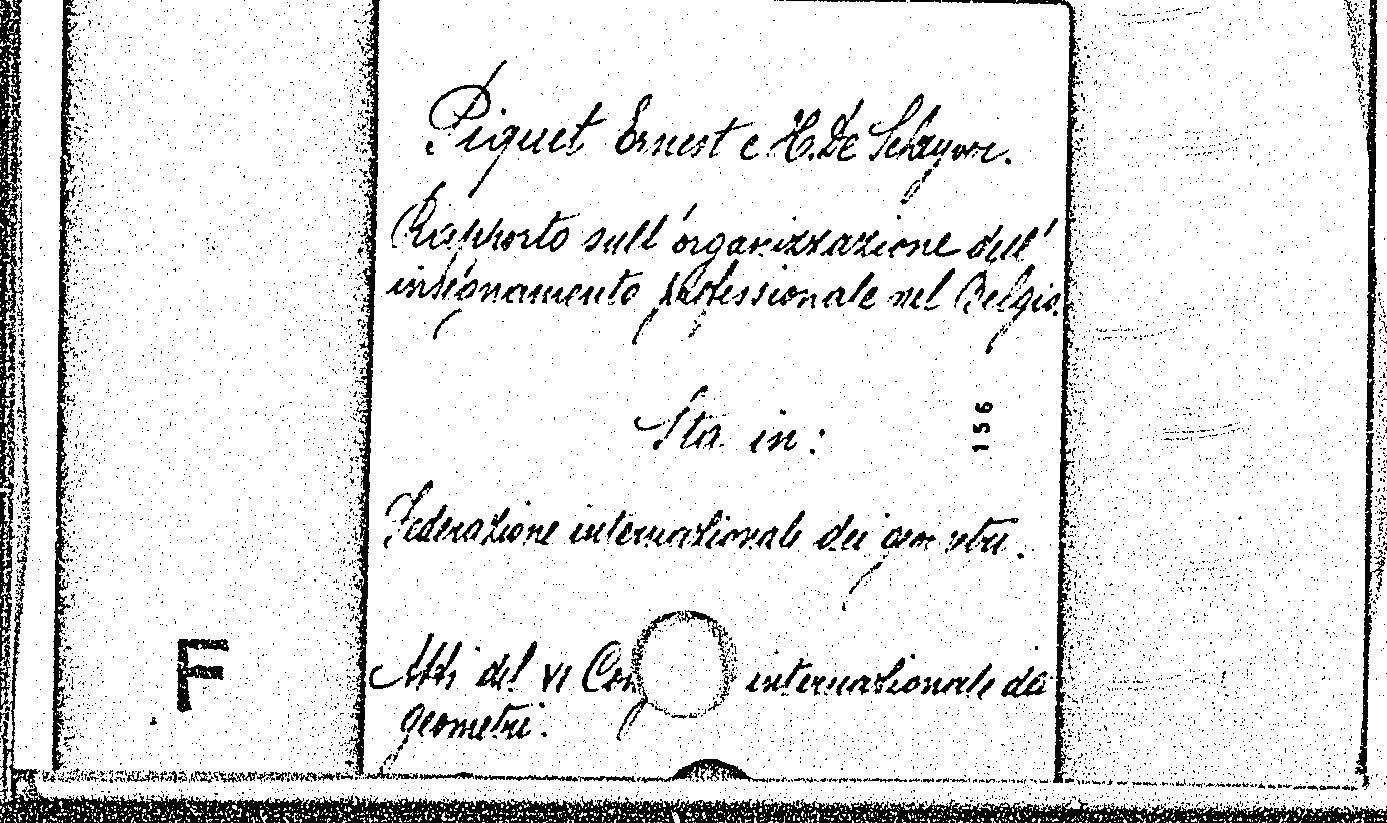 Piquet Ernest e H. De
Rapporto sull'organizzazione dell'
insegnamento professionale nel Belgio.
Sta in:
156
Federazione internazionale dei geometri.
F
Atti del VI Con internazionale dei
geometri.